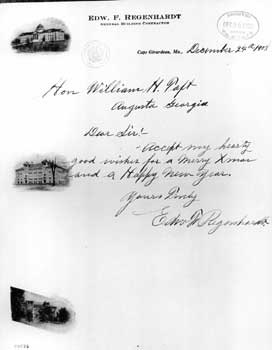 EDW. F. REGENHARDT
GENERAL BUILDING CONTRACTOR
Cape Girardeau, Mo., December 24th 1908
Hon William H. Taft
Augusta Georgia
Dear Sir!
Accept my hearty
good wishes for a Merry Xmas
and a Happy New Year.
Yours Truly
Edw F Regenhardt